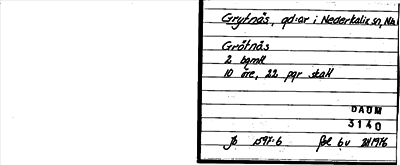 Grytnäs, gd:ar i Nederkalix sn, Nb
Gråtnäs
2 bgmll
10 öre, 22 pgr skatt
DAUM
3140
Jb 1597:6 fol 6v